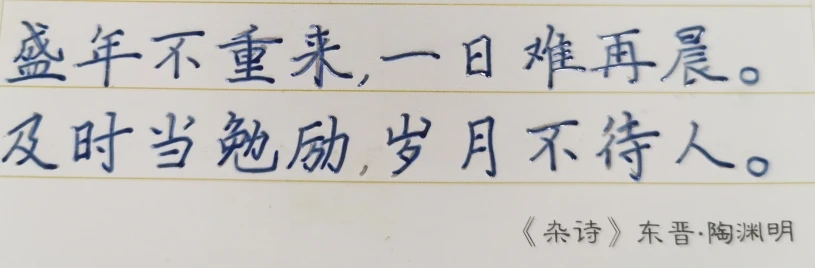 盛年不重来,一日难再晨。
及时当勉励,岁月不待人。
《杂诗》东晋·陶渊明